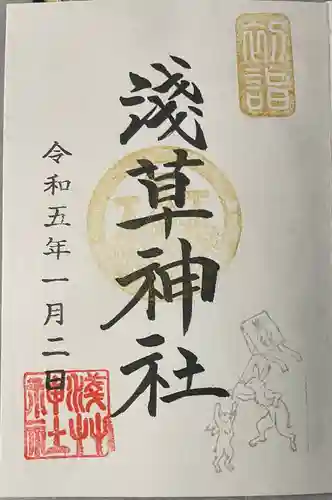 初詣
淺草神社
令和五年一月二日
淺草
神社